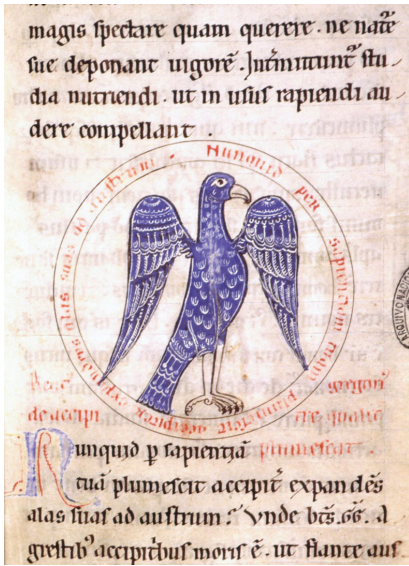 magis spectare quam querere . ne natē
sue deponant uigorē . Intmittunt stu
dia nutriendi . ut in usus rapiendi au
dere compellant
per sapientiam tuam plumescit accipiter expandens alas suas ad austrum
de accipi
Nunquid p sapientiā plumescit
tuā plumescit accipit̄ expandēs
alas suas ad austrum? Vnde bt̄s. GG. A
grestib' accipitribus moris ē . ut flante aus
ARQUIVO